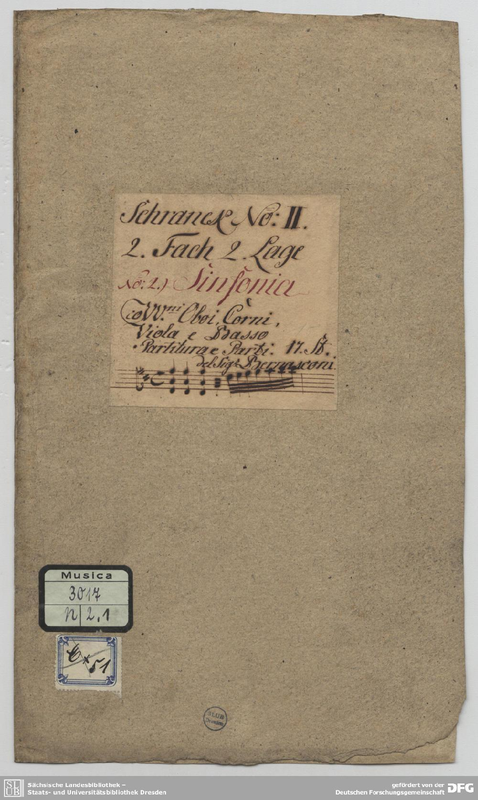 Schranck No: II.
2. Fach 2. Lage
No: 2.) Sinfonia
Co VV.ni Oboi, Corni,
Viola e Basso
Partitura e Parti. 17. St.
del Sigr. Bernasconi.
Musica
3017
N/2,1
Cx 51
Sächsische Landesbibliothek –
Staats- und Universitätsbibliothek Dresden
gefördert von der
Deutschen Forschungsgemeinschaft DFG